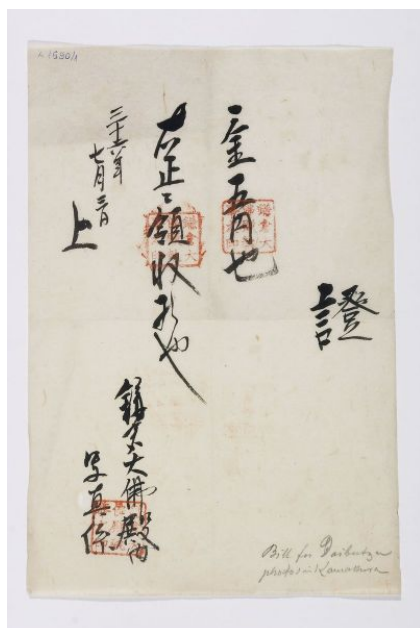 證
一金五円也
右正ニ領収候也
三十六年
七月三日
上
鎌倉大佛殿内
写真係
Bill for Daibutzu
photos in Kamakura